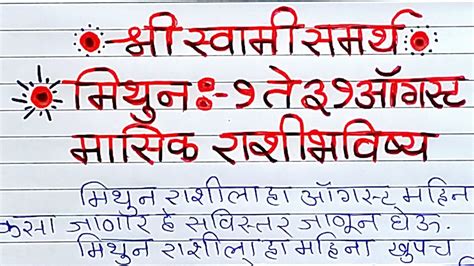 श्री स्वामी समर्थ
मिथुन :- १ ते ३१ ऑगस्ट
मासिक राशीभविष्य
मिथुन राशीला हा ऑगस्ट महिन
कसा जाणार हे सविस्तर जाणून घेऊ.
मिथुन राशीला हा महिना खुपच